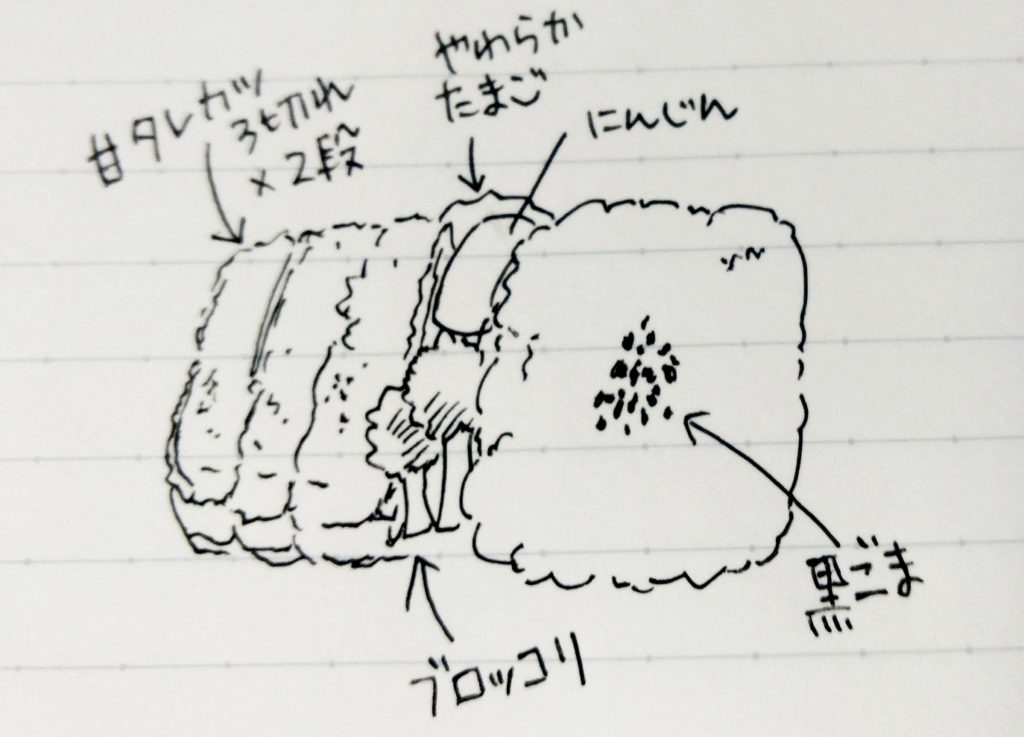 甘タレカツ
3切れ
×2段
やわらか
たまご
にんじん
黒ごま
ブロッコリ